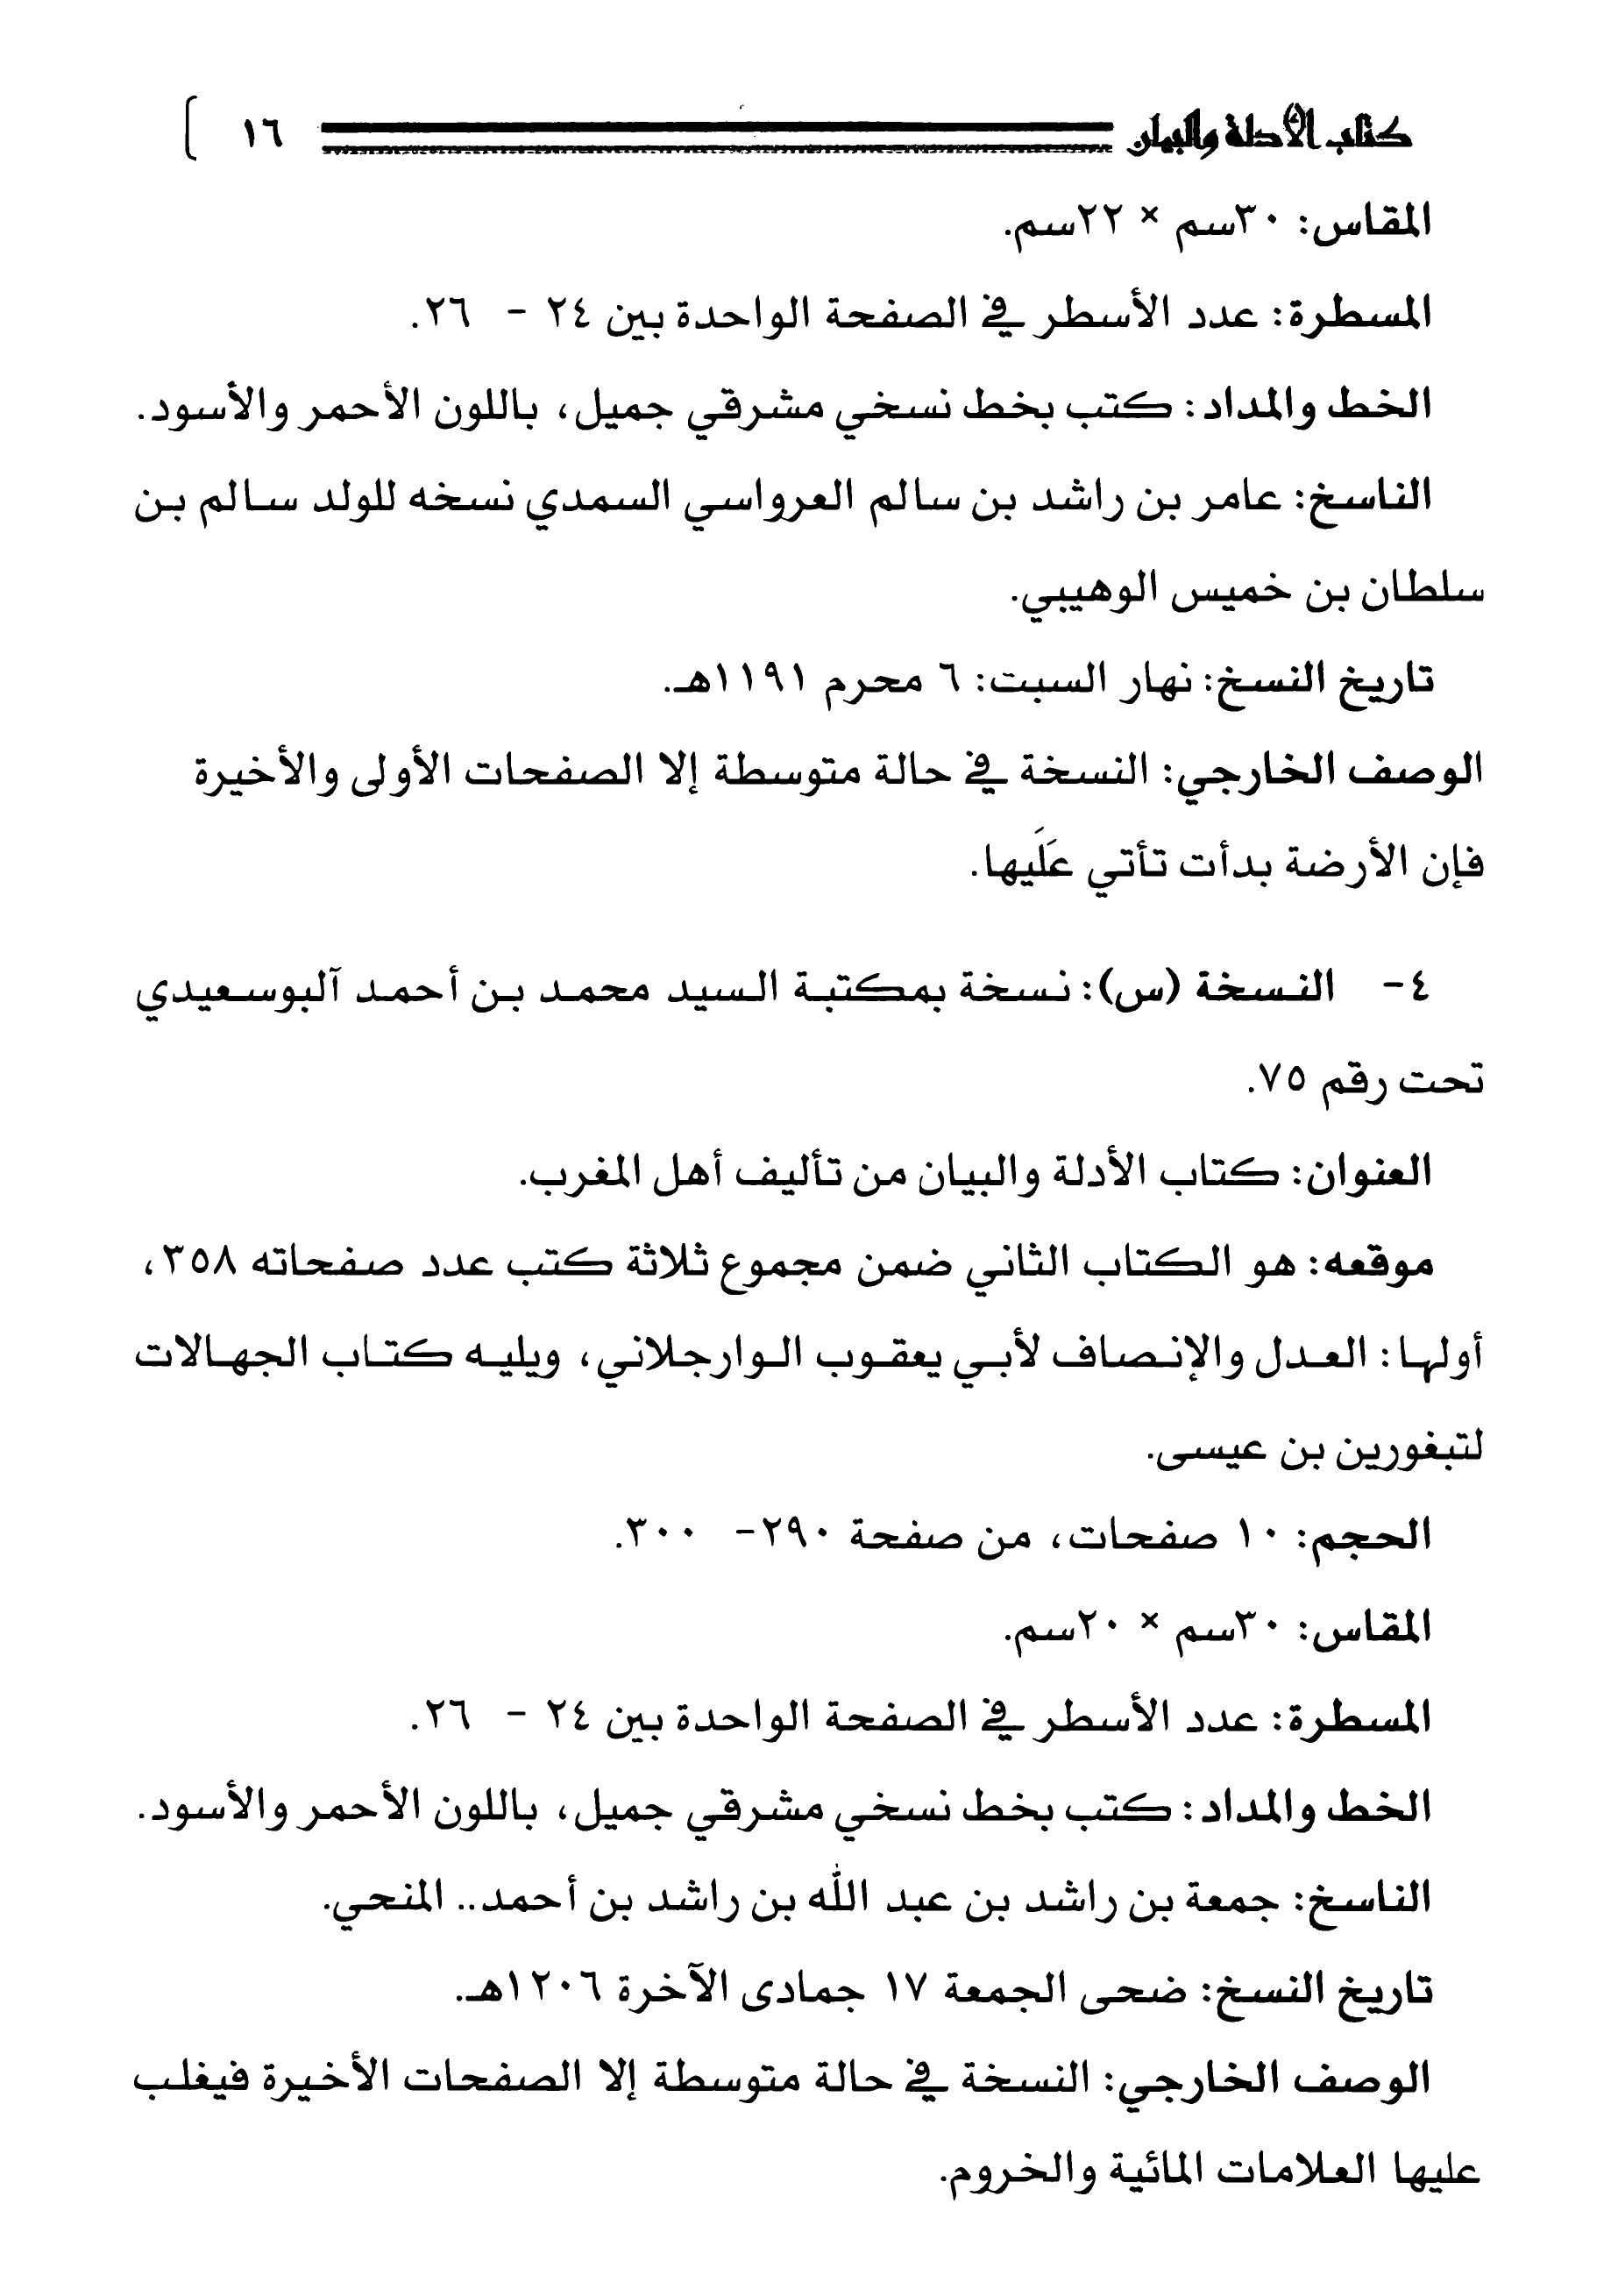 كتاب الأدلة والبيان ١٦
المقاس: ٣٠سم × ٢٢سم.
المسطرة: عدد الأسطر في الصفحة الواحدة بين ٢٤ - ٢٦.
الخط والمداد: كتب بخط نسخي مشرقي جميل، باللون الأحمر والأسود.
الناسخ: عامر بن راشد بن سالم العرواسي السمدي نسخه للولد سالم بن
سلطان بن خميس الوهيبي.
تاريخ النسخ: نهار السبت: ٦ محرم ١١٩١هـ.
الوصف الخارجي: النسخة في حالة متوسطة إلا الصفحات الأولى والأخيرة
فإن الأرضة بدأت تأتي عَلَيها.
٤- النسخة (س): نسخة بمكتبة السيد محمد بن أحمد آلبوسعيدي
تحت رقم ٧٥.
العنوان: كتاب الأدلة والبيان من تأليف أهل المغرب.
موقعه: هو الكتاب الثاني ضمن مجموع ثلاثة كتب عدد صفحاته ٣٥٨،
أولها: العدل والإنصاف لأبي يعقوب الوارجلاني، ويليه كتاب الجهالات
لتبغورين بن عيسى.
الحجم: ١٠ صفحات، من صفحة ٢٩٠- ٣٠٠.
المقاس: ٣٠سم × ٢٠سم.
المسطرة: عدد الأسطر في الصفحة الواحدة بين ٢٤ - ٢٦.
الخط والمداد: كتب بخط نسخي مشرقي جميل، باللون الأحمر والأسود.
الناسخ: جمعة بن راشد بن عبد الله بن راشد بن أحمد.. المنحي.
تاريخ النسخ: ضحى الجمعة ١٧ جمادى الآخرة ١٢٠٦هـ.
الوصف الخارجي: النسخة في حالة متوسطة إلا الصفحات الأخيرة فيغلب
عليها العلامات المائية والخروم.